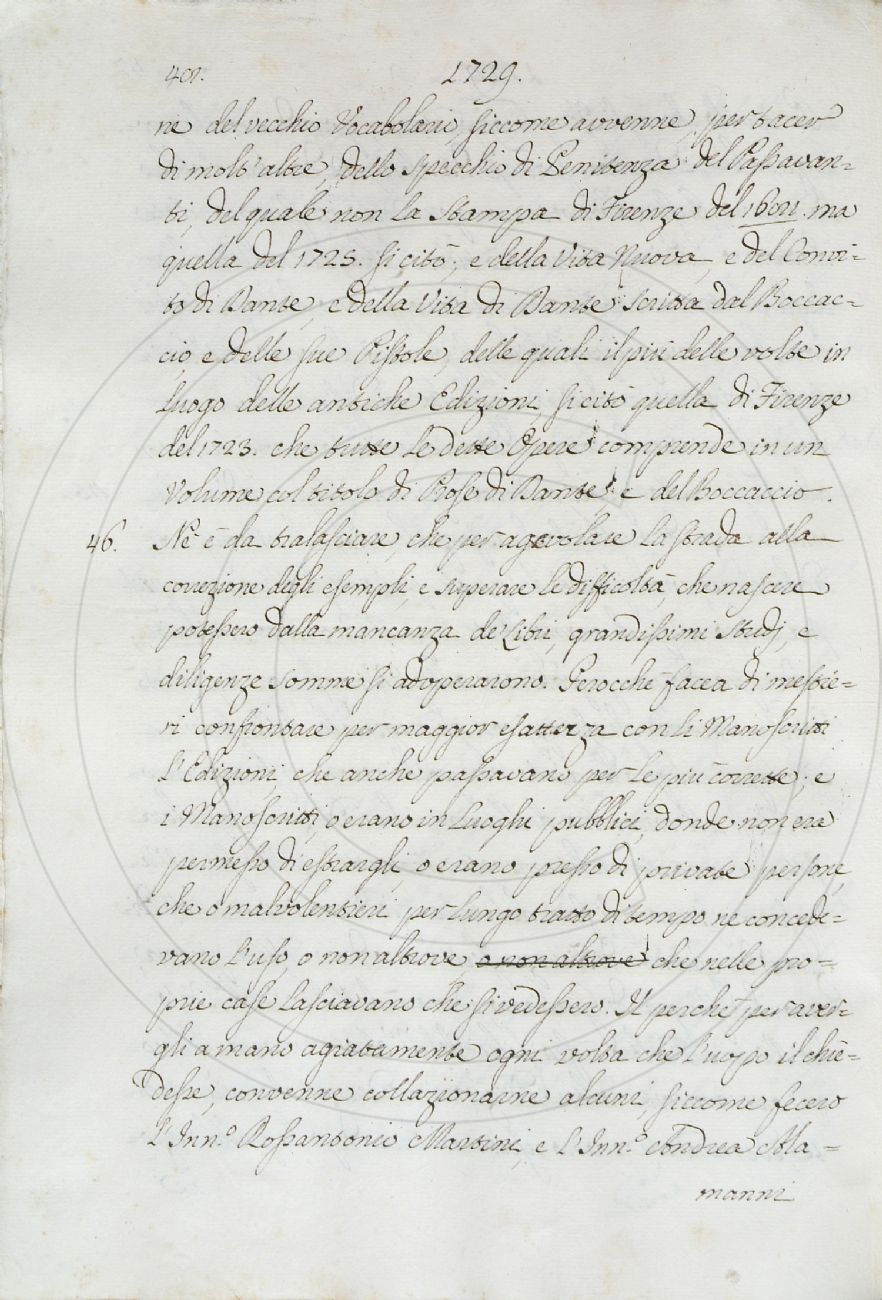 401. 1729.
ne del vecchio Vocabolario, siccome avvenne, per tacer
di molt'altre, dello specchio di Penitenza del Passavan=
ti, del quale non La Stampa di Firenze del ma
quella del 1725. si citò; e della Vita Nuova, e del Convi=
to di Dante, e della Vita di Dante scritta dal Boccac=
cio, e delle sue Pistole, delle quali il più delle volte in
Luogo delle antiche Edizioni, si citò quella di Firenze
del 1723. che tutte Le dette Opere comprende in un
Volume col titolo di Prose di Dante, e del Boccaccio.
46. Ne è da tralasciare, che per agevolare La strada alla
correzione degli esempli, e superare Le difficoltà, che nascere
potessero dalla mancanza de' Libri, grandissimi studj, e
diligenze somme si adoperarono. Perocchè facea di mestie=
ri confrontare per maggior esattezza con Li Manoscritti
L'Edizioni, che anche passavano per Le più corrette; e
i Manoscritti, o erano in Luoghi pubblici, donde non era
permesso di estrargli, o erano presso di private persone,
che o malvolentieri per Lungo tratto di tempo ne concede=
vano L'uso, o non altrove o non altrove che nelle pro=
prie case Lasciavano che si vedessero. Il perchè per aver=
gli a mano agiatamente ogni volta che L'uopo il chie=
desse, convenne collazionarne alcuni siccome fecero
L'Inn.º Rossantonio Martini, e L'Inn.º Andrea Ala=
manni